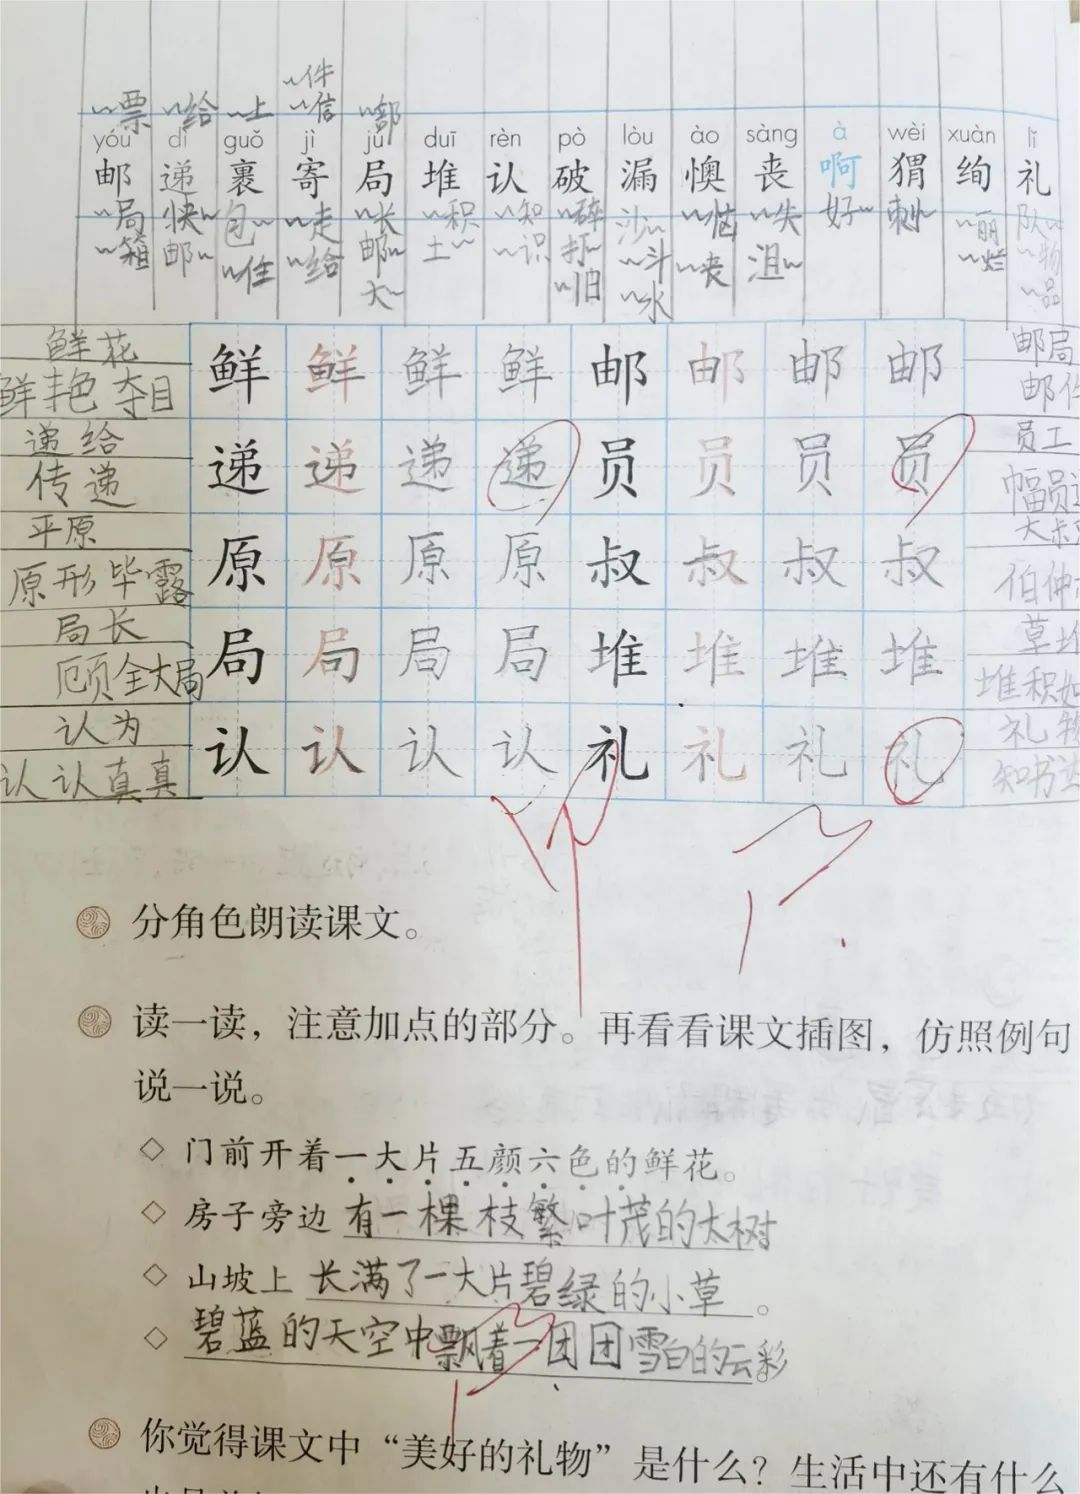 ~件
~票 ~给 ~上 ~信 ~部
yóu dì guǒ jì jú duī rèn pò lòu ào sàng à wèi xuàn lǐ
邮 递 裹 寄 局 堆 认 破 漏 懊 丧 啊 猬 绚 礼
~局 快~ 包~ ~走 ~长 ~积 ~知 ~碎 沙~ ~恼 ~失 好~ 刺~ ~丽 队~
~箱 邮~ ~住 ~给 邮~ 土~ ~识 打~ ~斗 ~丧 沮~ ~烂 ~物
大~ ~旧 ~水 ~品
鲜花 邮局
鲜艳夺目 鲜 鲜 鲜 鲜 邮 邮 邮 邮 邮件
递给 员工
传递 递 递 递 递 员 员 员 员 幅员
平原
原形毕露 原 原 原 原 叔 叔 叔 叔 伯仲
局长 草堆
顾全大局 局 局 局 局 堆 堆 堆 堆 堆积如
认为 礼物
认认真真 认 认 认 认 礼 礼 礼 礼 知书达
分角色朗读课文。
读一读，注意加点的部分。再看看课文插图，仿照例句
说一说。
◇ 门前开着一大片五颜六色的鲜花。
◇ 房子旁边有一棵枝繁叶茂的大树
◇ 山坡上长满了一大片碧绿的小草。
◇ 碧蓝的天空中飘着一团团雪白的云彩。
你觉得课文中“美好的礼物”是什么？生活中还有什么